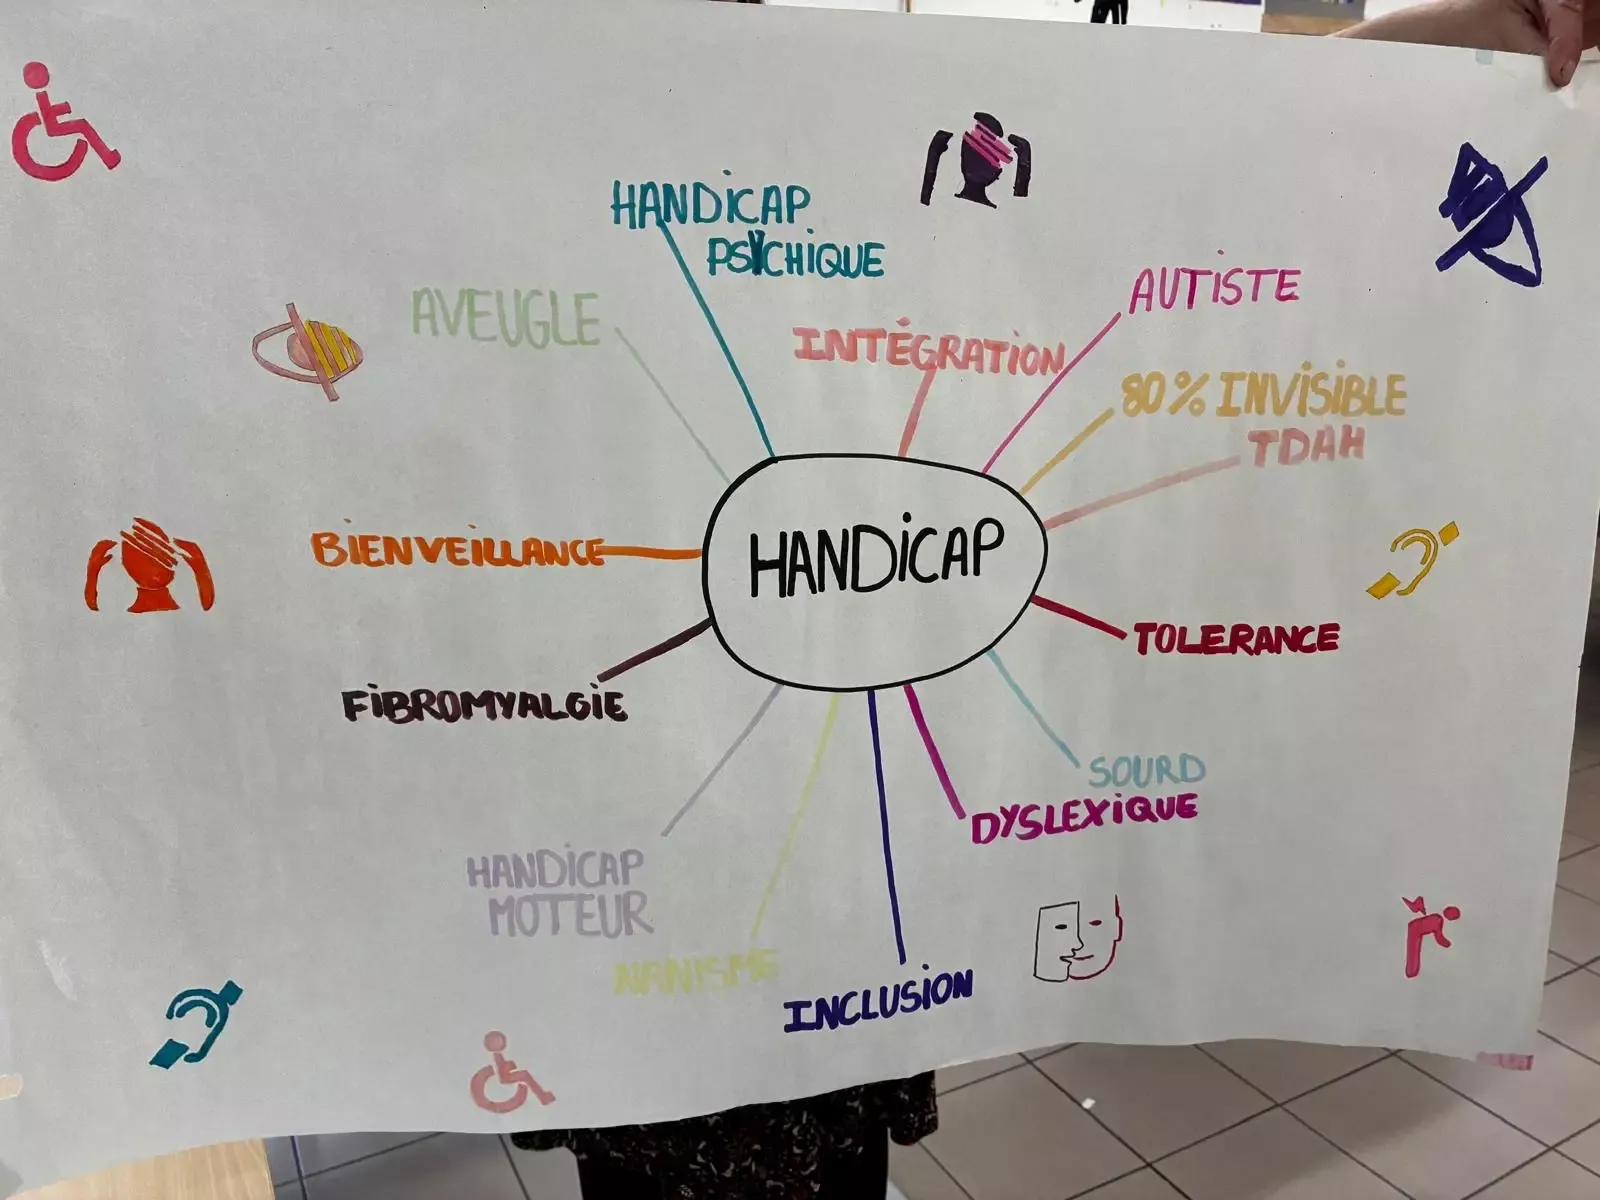 HANDICAP
PSYCHIQUE
AUTISTE
AVEUGLE
INTÉGRATION
80% INVISIBLE
TDAH
BIENVEILLANCE
HANDICAP
TOLERANCE
FIBROMYALGIE
SOURD
DYSLEXIQUE
HANDICAP
MOTEUR
NANISME
INCLUSION